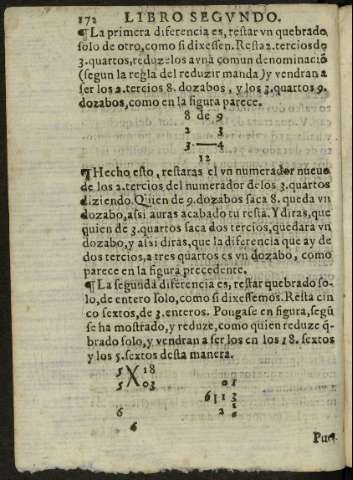 172 LIBRO SEGVNDO.
¶La primera diferencia es, restar vn quebrado
solo de otro, como si dixessen. Resta 2. tercios de
3. quartos, reduzelos a vna comun denominació
(segun la regla del reduzir manda) y vendran a
ser los 2. tercios 8. dozabos, y los 3. quartos 9.
dozabos, como en la figura parece.
8 de 9
2 3
3 — 4
12
¶Hecho esto, restaras el vn numerador nueuo
de los 2. tercios, del numerador de los 3. quartos
diziendo. Quien de 9. dozabos saca 8. queda vn
dozabo, assi auras acabado tu resta. Y diras, que
quien de 3. quartos saca dos tercios, quedara vn
dozabo, y assi diras, que la diferencia que ay de
dos tercios, a tres quartos es vn dozabo, como
parece en la figura precedente.
¶La segunda diferencia es, restar quebrado so-
lo, de entero solo, como si dixessemos. Resta cin
co sextos, de 3. enteros. Pongase en figura, segũ
se ha mostrado, y reduze, como quien reduze q̃-
brado solo, y vendran a ser los enteros 18. sextos
y los 5. sextos desta manera.
5 X 18
5 03 01
6 | 1 3
6 2
6
Pues